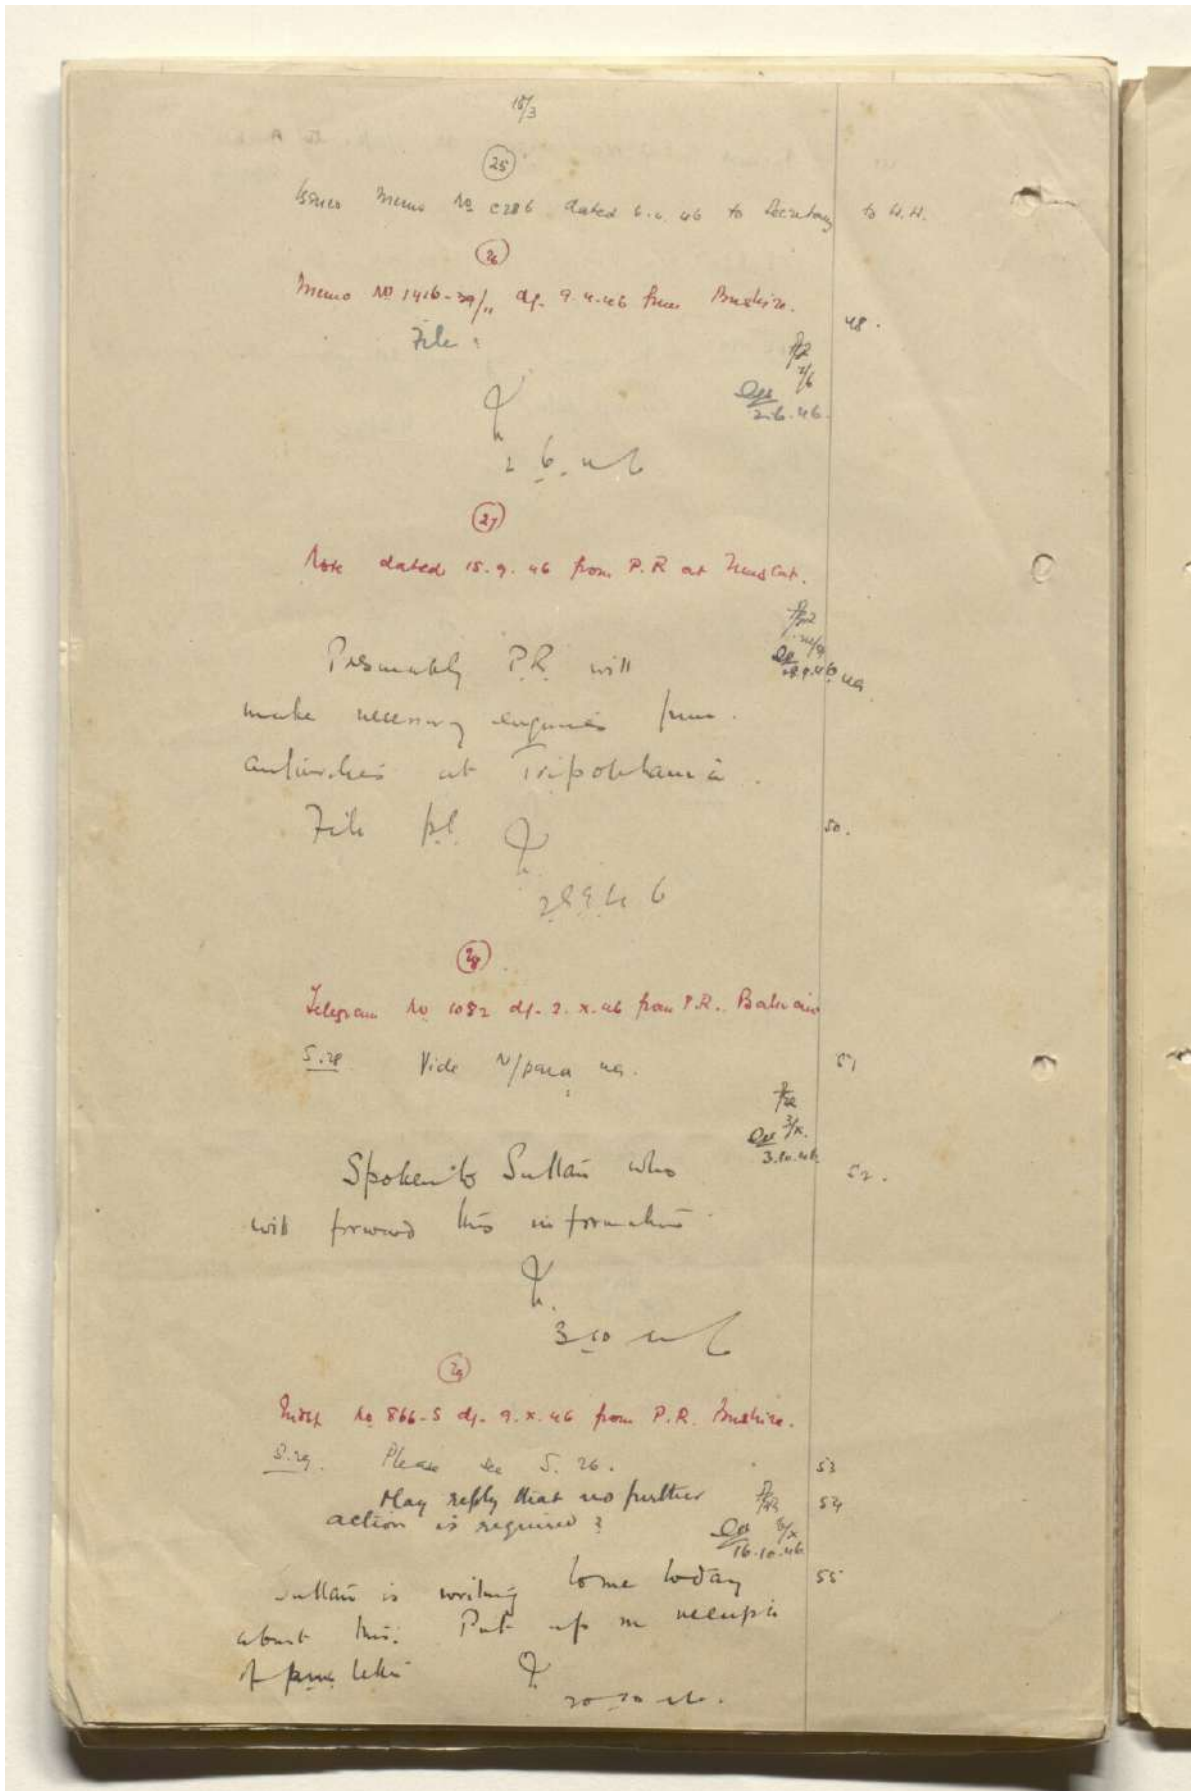 15/3
25
Issued Memo No C286 dated 6.4.46 to Secretary to H.H.
26
Memo No 1416-39/11 df. 9.4.46 from Bushire.
48.
File.
2/6
2.6.46.
2 6. 46
27
Note dated 15.9.46 from P.R at Muscat.
Presumably P.R. will
49
make necessary enquiries from
authorities at Tripolitania.
File pl.
50.
28 9 46
28
Telegram No 1082 df. 2.X.46 from P.R. Bahrain
S.28 Vide N/para 49.
51
3/X.
3.10.46
Spoken to Sultan who
52.
will forward this information
3 10 46
29
No 866-S df. 9.X.46 from P.R. Bushire.
S.29. Please see S. 26.
53
May reply that no further
54
action is required?
16.10.46
Sultan is writing to me today
55
about this. Put up on receipt
of letter
20 10 46.